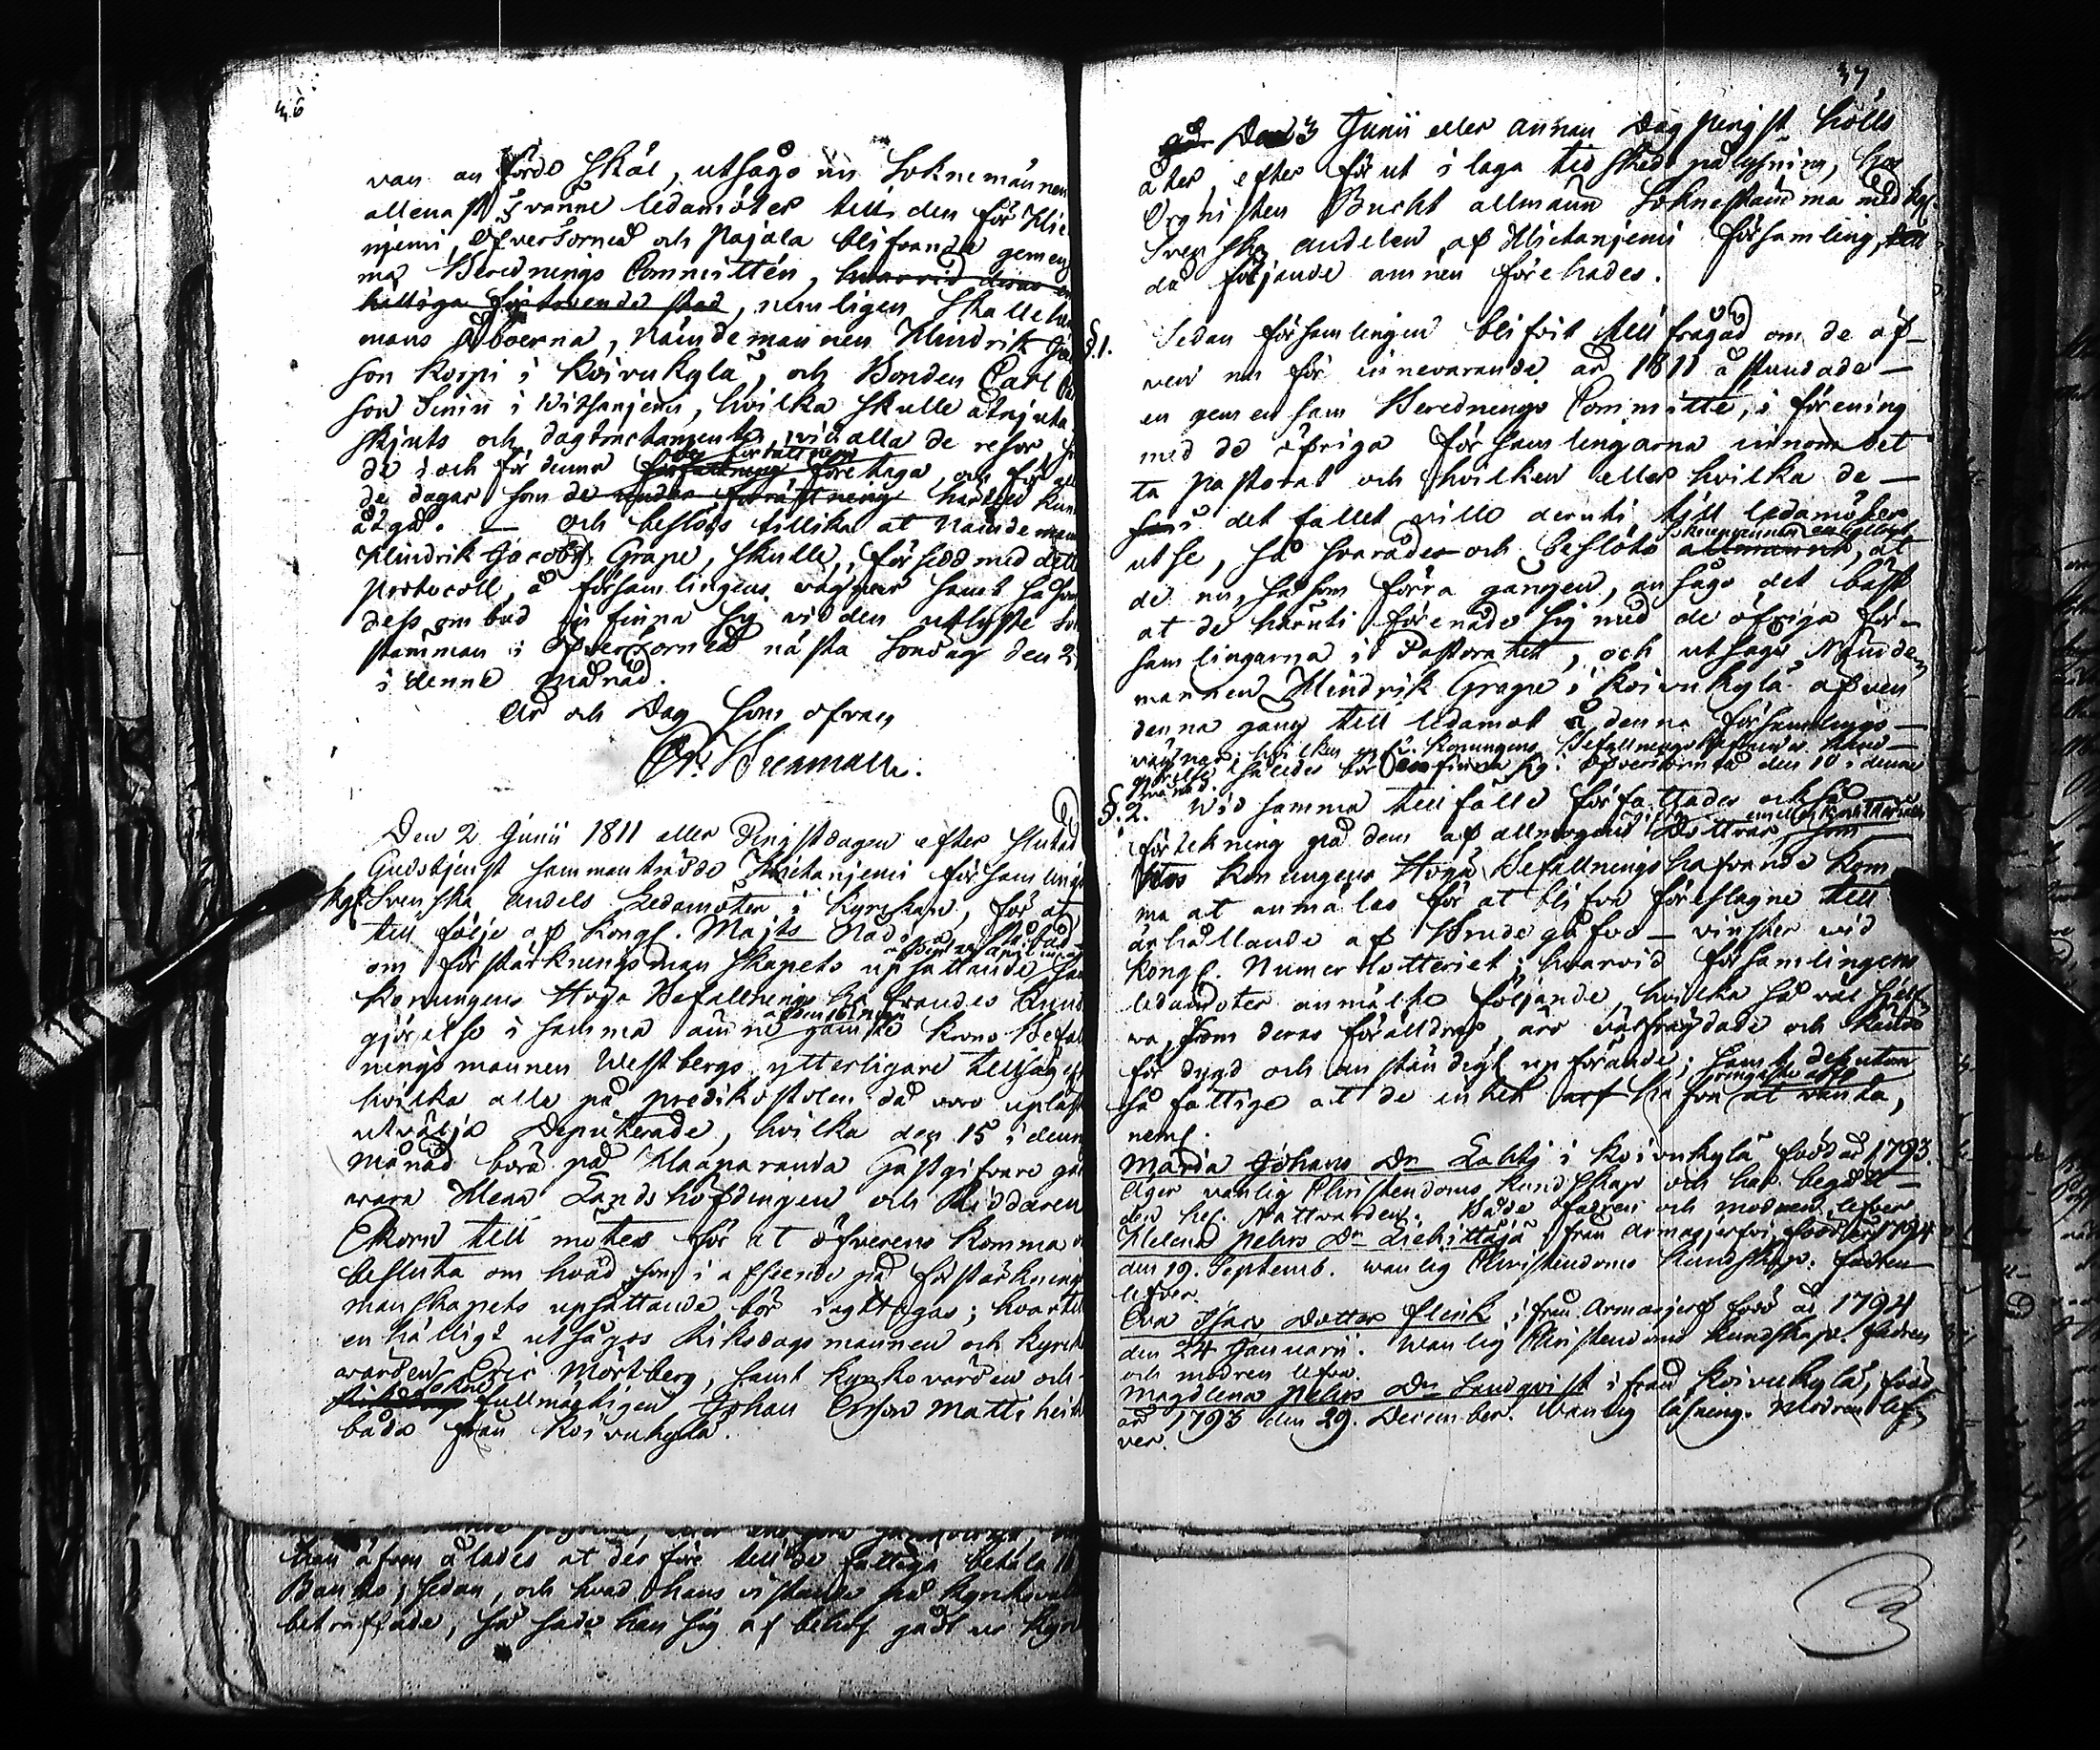 36
van anförde skäl, utsågo nu Soknemännen
allenast tvänne ledamöter till den för Hie-
njemi, Öfvertorneå och Pajala blifvande gemen
ma Berednings Committén,
, nemligen Skatte
mans Åboerna, Nämndemannen Hindrik
son Korpi i Koivukylä, och Bonden Carl
son Simin i Witsanjemi, hvilka skulle åtnjuta
skjuts och dagtractamente, vid alla de resor,
de i och för denna företaga, och för
de dagar som de härtill kun
åtgå. — Och beslöts tillika at Nämndeman
Hindrik Jacobss. Grape, skulle, försedd med dett
protocoll, å församlingens vägnar samt såsom
dess ombud infinna sig vid den utlyste
stämman i Öfvertorneå nästa Söndag den 2
i denne månad.
År och Dag som ofvan
Wrenman.
Den 2 Junii 1811 eller Pingstdagen efter slutad
Gudstjenst sammanträdde Hietanjemi församling
Svenska andels Ledamöter i kyrkan, för at
till följe af Kongl. Majts Nåd.
om förstärkningsmanskapets upsättande
Konungens Höga Befallnings hafvandes kun
görelse i samma ämne Krono Befal
ningsmannen Westbergs ytterligare tillsägelse
hvilka alla på predikostolen då voro uplästa
utvälja Deputerade, hvilka den 15 i denna
månad borde på Haaparanda Gästgifvare gå
vara Herr Landshöfdingen och Riddaren
Ekorn till mötes för at öfverens komma
besluta om hvad som i afseende på förstärknings
manskapets upsättande bör iagttagas; hvartil
enhälligt utsågos Riksdagsmannen och kyrko
värden Eric Mörtberg, samt kyrkovärden och
fullmägtigen Johan Ersson Mattiheik
båda från Koivukylä.
han äfven ålades at derföre till de fattiga betala
Banko; sedan, och hvad hans vistande på kyrko
beträffade, så sade han sig af behof gådt ur kyr
37
Den 3 Junii eller annan Dag pingst hölls
åter, efter förut i laga tid skedd pålysning, hos
Orgnisten Bucht allmänn Soknestämma med
Svenska andelen af Hietanjemi församling,
då följande ämnen förehades.
§.1. Sedan församlingen blifvit tillfrågad om de äf-
ven nu för innevarande år 1811 åstundade —
en gemensam Berednings Committé, i förening
med de öfriga församlingarna innom det
ta pastorat och hvilken eller hvilka de —
i det fallet ville deruti till ledamöter
utse, så svarades och beslöts enhälligt, at
de nu, såsom förra gången, ansågo det bäst
at de häruti förenade sig med de öfriga för-
samlingarna i Pastoratet, och utsago Nämnde-
mannen Hindrik Grape i Koivukylä äfven
denna gång till ledamot å denna församlings —
vägnar; hvilken enl. Konungens Befallningshafvandes kun —
görelse således bör infinna sig i Öfvertorneå den 10 i denna
månad.
§.2. Wid samma tillfälle författades också
förtekning på dem af allmogens Döttrar, som
hos Konungens Höga Befallningshafvande kom
ma at anmälas för at blifva föreslagne till
erhållande af Brudgåfvo — vinster wid
Kongl. Numer Lotteriet; hvarvid församlingens
ledamöter anmälte följande, hvilka så väl sjelf-
va, som deras föräldrar, äro välfräjdade och kända
för dygd och anständigt upförande; samt desutom
så fattige at de intet hafva at vänta,
neml.
Maria Johans Dr Lahti i Koivukylä född år 1793.
Äger vanlig Christendoms kundskap och har begådt
den hel. Nattvarden. Både fadren och modren lefver.
Helena Pehrs Dr Liehittäjä från Armasjerfvi född år 1794
den 19. Septemb. vanlig Christendoms kundskap. Fadren
lefver.
Eva Isac Dotter Flink, ifrån Armasjerf född år 1794
den 24 Januarii. Wanlig Christendoms kundskap. Fadren
och modren lefva.
Magdlena Pehrs Dr Landqvist ifrån Koivukylä, född
år 1793 den 29. December. Wanlig läsning. Modren lef-
ver.